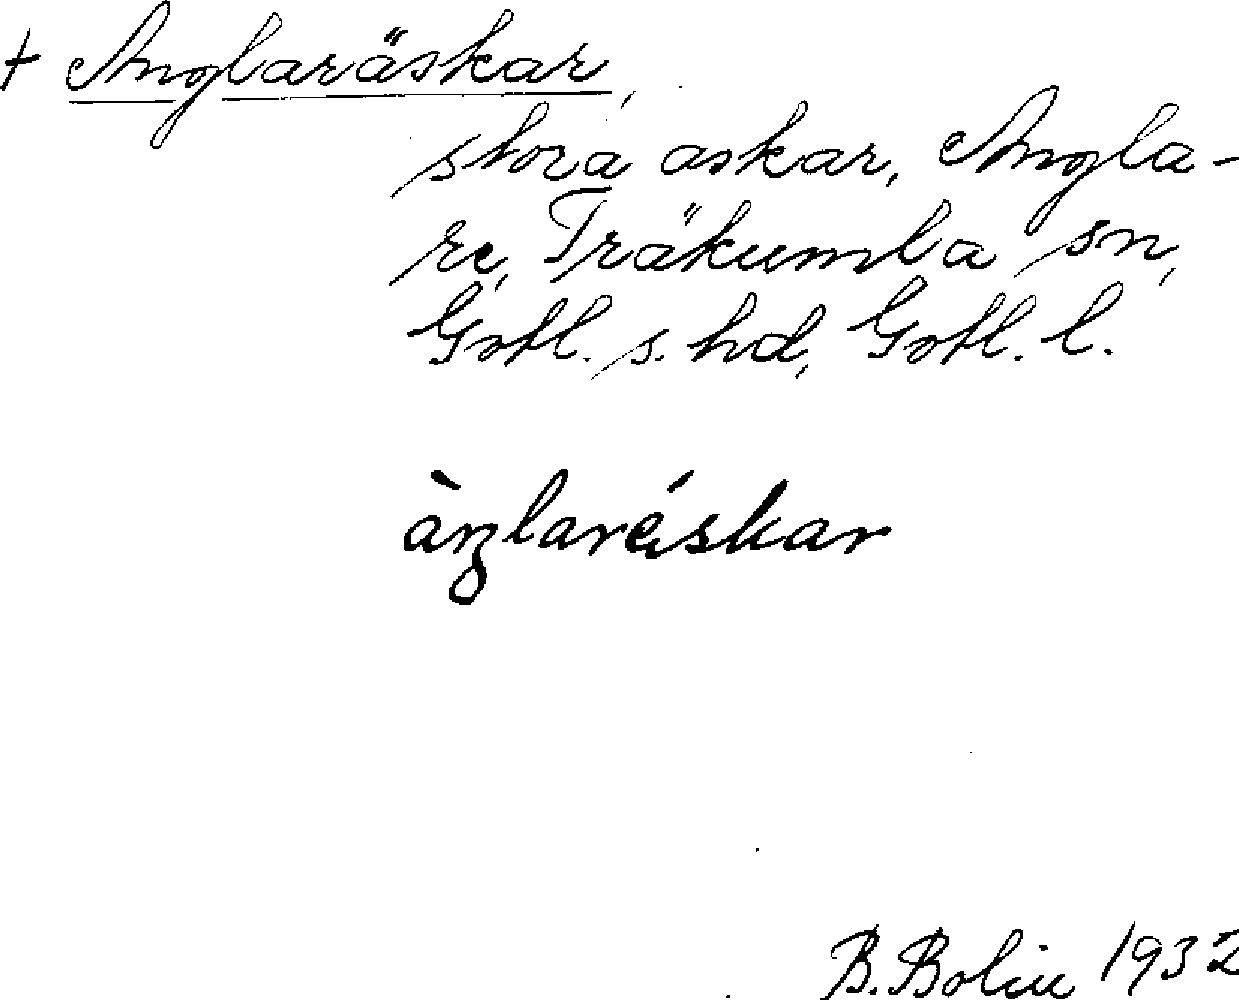 + Anglaräskar,
stora askar, Angla-
re, Träkumla sn,
Gotl. s. hd, Gotl. l.
àŋlaráskar
B. Bolin 1932